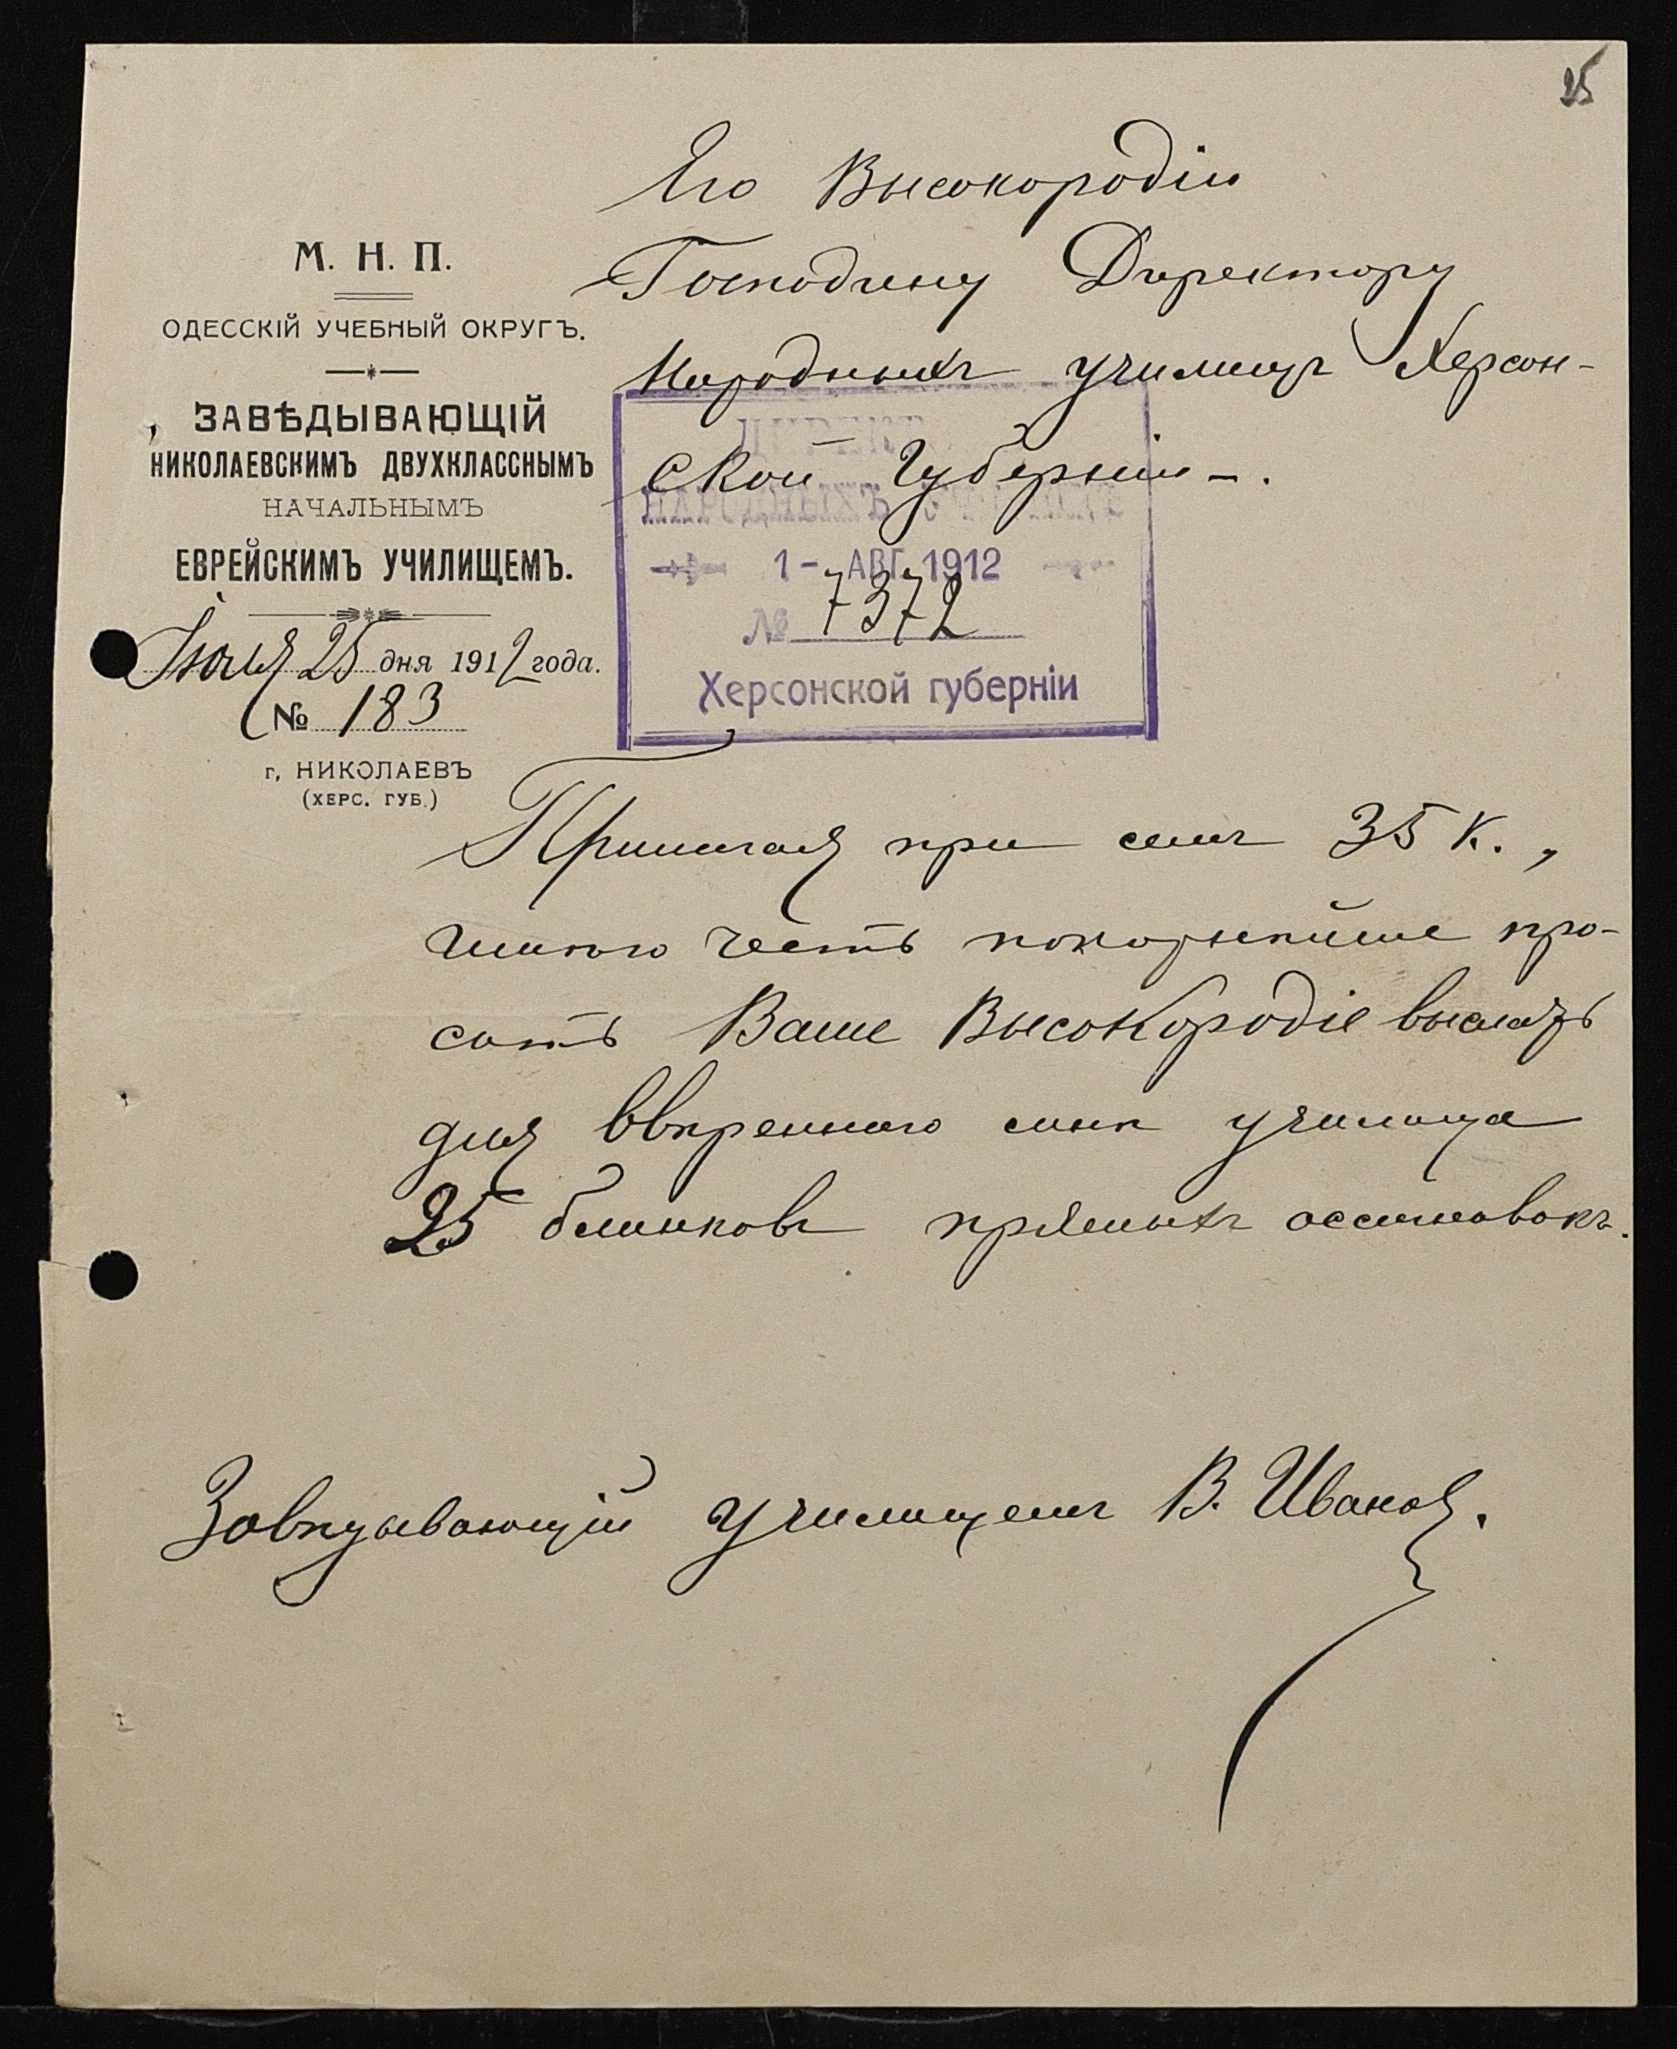 25
Его Высокородію
Господину Директору
Народныхъ училищъ Херсон-
ской Губерніи.
М. Н. П.
ОДЕССКІЙ УЧЕБНЫЙ ОКРУГЪ.
ЗАВѢДЫВАЮЩІЙ
НИКОЛАЕВСКИМЪ ДВУХКЛАССНЫМЪ
НАЧАЛЬНЫМЪ
ЕВРЕЙСКИМЪ УЧИЛИЩЕМЪ.
Іюля 25 дня 1912 года.
№ 183
г. НИКОЛАЕВЪ
(ХЕРС. ГУБ.)
НАРОДНЫХЪ
1 - АВГ. 1912
№ 7372
Херсонской губерніи
Прилагая при семъ 35 к.,
имѣю честь покорнѣйше про-
сить Ваше Высокородіе выслать
для ввѣреннаго мнѣ училища
25 бланковъ прямыхъ ассигновокъ.
Завѣдывающій училищемъ В. Иванов.